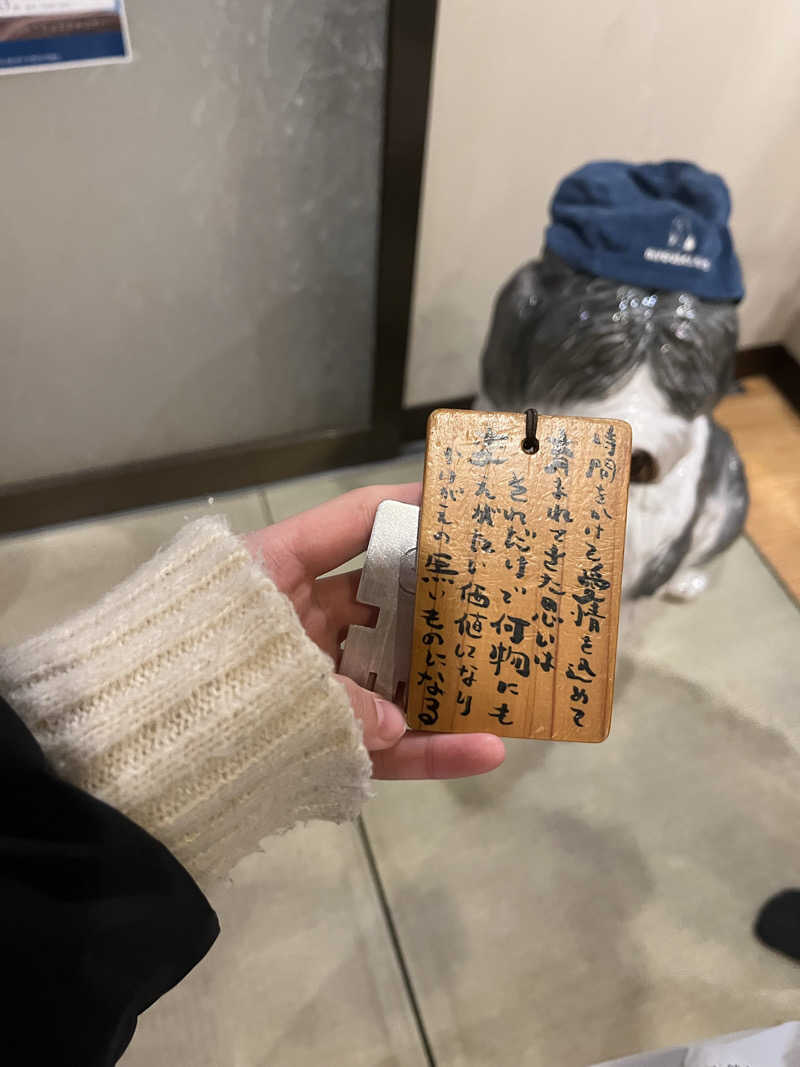 時間をかけて愛情を込めて
育まれてきた思いは
それだけで何物にも
かえがたい価値になり
かけがえの無いものになる